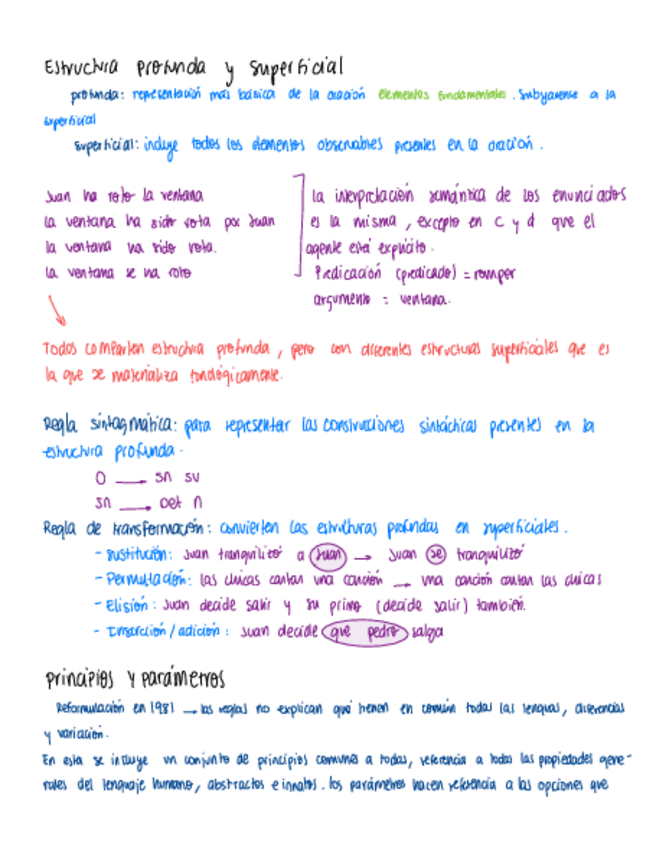 Estructura profunda y superficial
profunda: representación más básica de la oración elementos fundamentales. Subyacente a la
superficial
superficial: incluye todos los elementos observables presentes en la oración.
Juan ha roto la ventana
la ventana ha sido rota por Juan
la ventana ha sido rota.
la ventana se ha roto
la interpretación semántica de los enunciados
es la misma, excepto en c y d que el
agente está explícito.
Predicación (predicado) = romper
argumento = ventana.
Todos comparten estructura profunda, pero con diferentes estructuras superficiales que es
la que se materializa fonológicamente.
Regla sintagmática: para representar las construcciones sintácticas presentes en la
estructura profunda.
O → SN SV
SN → Det N
Regla de transformación: convierten las estructuras profundas en superficiales.
- Sustitución: Juan tranquilizó a Juan → Juan se tranquilizó
- Permutación: las chicas cantan una canción → una canción cantan las chicas
- Elisión: Juan decide salir y su primo (decide salir) también.
- Inserción / adición: Juan decide que pedro salga
principios y parámetros
Reformulación en 1981 → las reglas no explican qué tienen en común todas las lenguas, diferencias
y variación.
En esta se incluye un conjunto de principios comunes a todas, referencia a todas las propiedades gene-
rales del lenguaje humano, abstractos e innatos. los parámetros hacen referencia a las opciones que